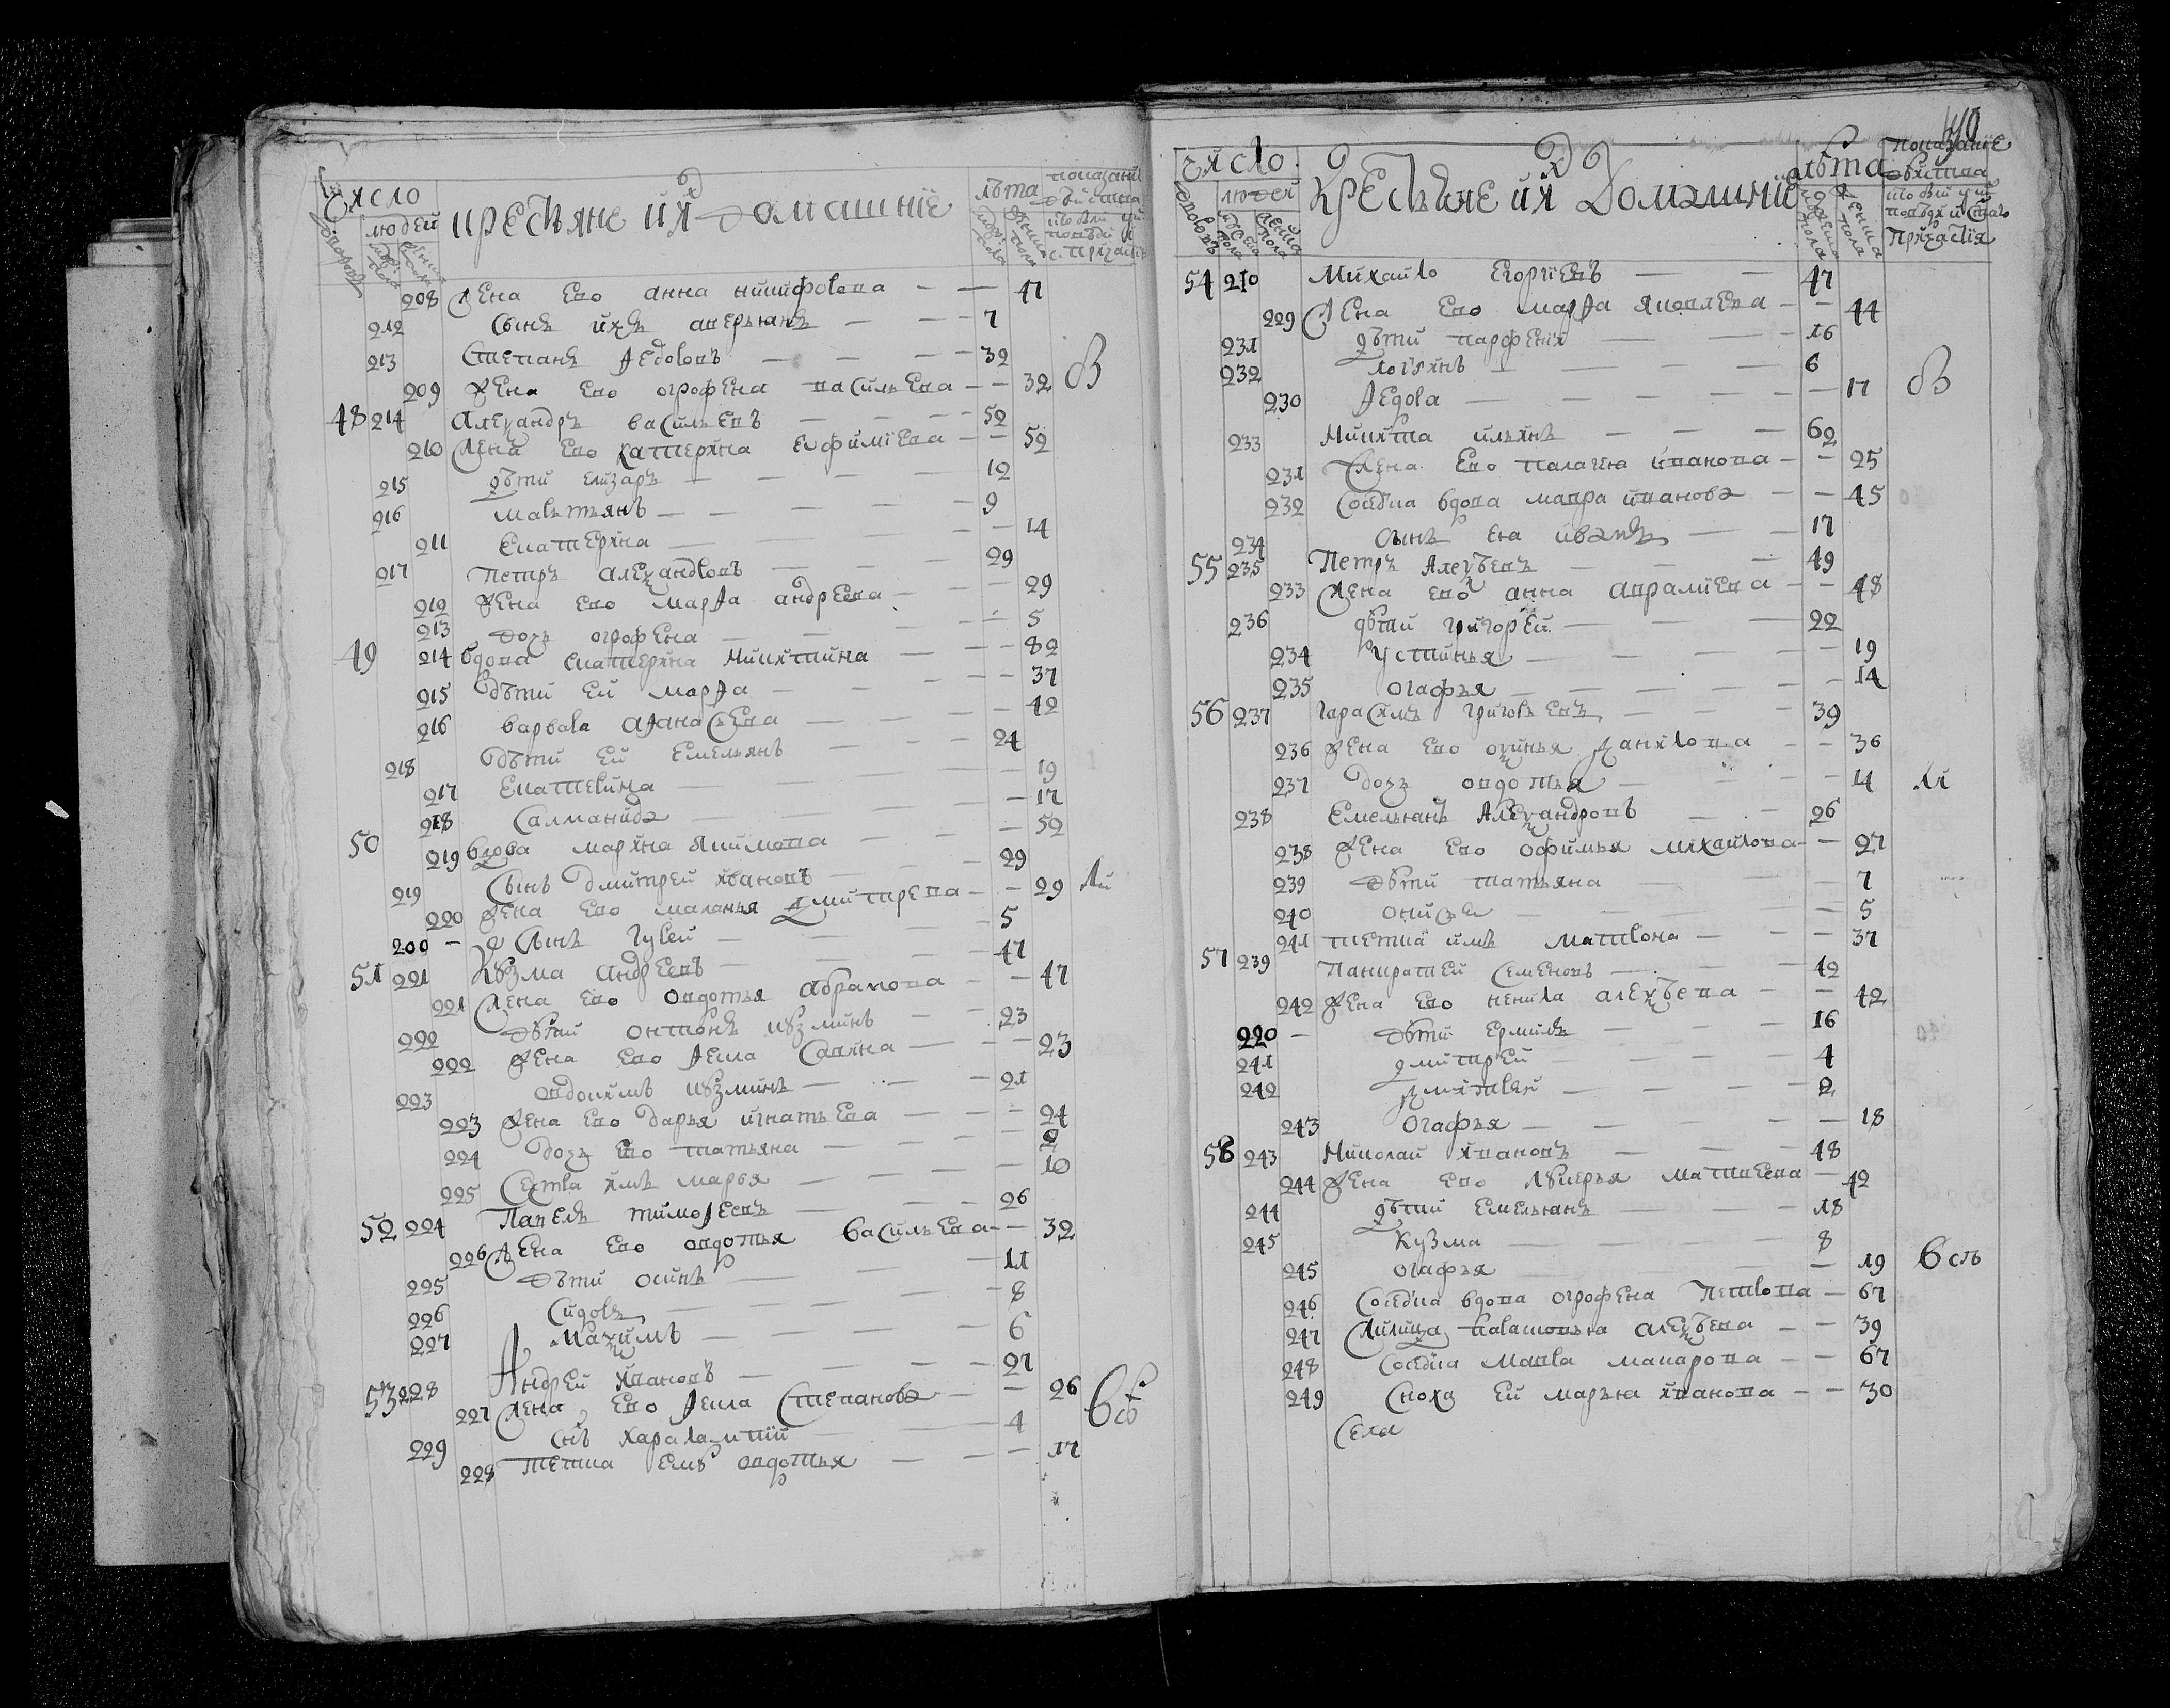 число крестьяне их домашніе лѣта показаніе
людей
208 Жена ево анна никифорова — — 47
212 Сынъ ихъ аверьянъ — — 7
213 Степанъ Ѳедоровъ — — 32
209 Жена ево огрофена васильева — — 32
48 214 Алеѯандръ васильевъ — — 52
210 Жена ево катерина ефимиева — — 52
215 дѣти елизаръ — — 12
216 мартьянъ — — 9
211 Екатерина — — 14
217 Петръ алеѯандровъ — — 29
212 Жена ево марѳа андреева — — 29
213 дочь огрофена — — 5
49 214 вдова екатерина никитина — — 82
215 дѣти ей марѳа — — 37
216 варвара аѳанасьева — — 42
218 дѣти ей емельянъ — — 24
217 Екатерина — — 19
218 Саламанида — — 17
50 219 вдова марина якимова — — 52
219 Сынъ дмитрей ивановъ — — 29
220 Жена ево маланья дмитрева — — 29
200 — Сынъ гурей — — 5
51 221 Кузма андреевъ — — 47
221 Жена ево овдотья абрамова — — 47
222 дѣти онтонъ кузминъ — — 23
222 Жена ево Ѳекла Савина — — 23
223 овдокимъ кузминъ — — 21
223 Жена ево дарья игнатьева — — 24
224 дочь ево татьяна — — 2
225 Сестра имъ марья — — 10
52 224 Павелъ тимоѳеевъ — — 26
226 Жена ево овдотья васильева — — 32
225 дѣти осипъ — — 11
226 Сидоръ — — 8
227 Маѯимъ — — 6
53 228 Андрей ивановъ — — 27
227 Жена ево Ѳекла Степанова — — 26
229 снъ харалампїй — — 4
228 тетка ему овдотья — — 17
40
число крестьяне их Домашние лѣта показание
людей
54 210 Михайло Егориевъ — — 47
229 Жена ево марѳа яковлева — — 44
231 дѣти парфений — — 16
232 логинъ — — 6
230 Ѳедора — — 17
233 Никита ильинъ — — 62
231 Жена ево палагия иванова — — 25
232 Соседка вдова мавра иванова — — 45
234 Сынъ ея иванъ — — 17
55 235 Петръ Алеѯѣевъ — — 49
233 Жена ево анна аврамиева — — 48
236 дѣти григорей — — 22
234 Устинья — — 19
235 огафья — — 14
56 237 гарасимъ григорьевъ — — 39
236 Жена ево оѯинья данилова — — 36
237 дочь овдотья — — 14
238 Емельянъ Алеѯандровъ — — 26
238 Жена ево офимья михайлова — — 27
239 дѣти татьяна — — 7
240 — — 5
241 тетка имъ матрона — — 37
57 239 Панкратей Семеновъ — — 42
242 Жена ево ненила алеѯѣева — — 42
220 — дѣти ермилъ — — 16
241 дмитрей — — 4
242 дмитрей — — 2
243 огафья — — 18
58 243 Николай ивановъ — — 48
244 Жена ево лукерья матвеева — 42
244 дѣти Емельянъ — — 18
245 Кузма — — 8
245 огафья — — 19
246 Соседка вдова огрофена Петрова — 67
247 алеѯѣева — — 39
248 Соседка мавра макарова — — 67
249 Сноха ей марья иванова — — 30
Села